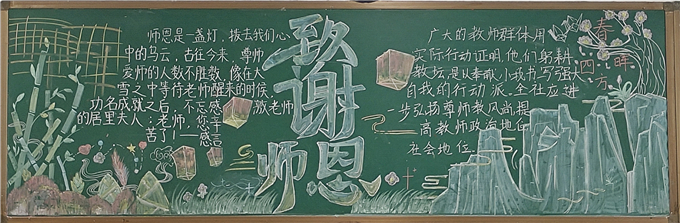 师恩是一盏灯，拨去我们心
中的乌云，古往今来，尊师
爱师的人数不胜数，像在大
雪之中等待老师醒来的时候
功名成就之后，不忘感激老师
的居里夫人：老师，您辛
苦了！——感言
致
谢
师恩
广大的教师群体用
实际行动证明，他们躬耕
教坛，是以奉献小我书写强大
自我的行动派。全社应进
一步弘扬尊师教风尚提
高教师政治地位
社会地位
春晖
四方